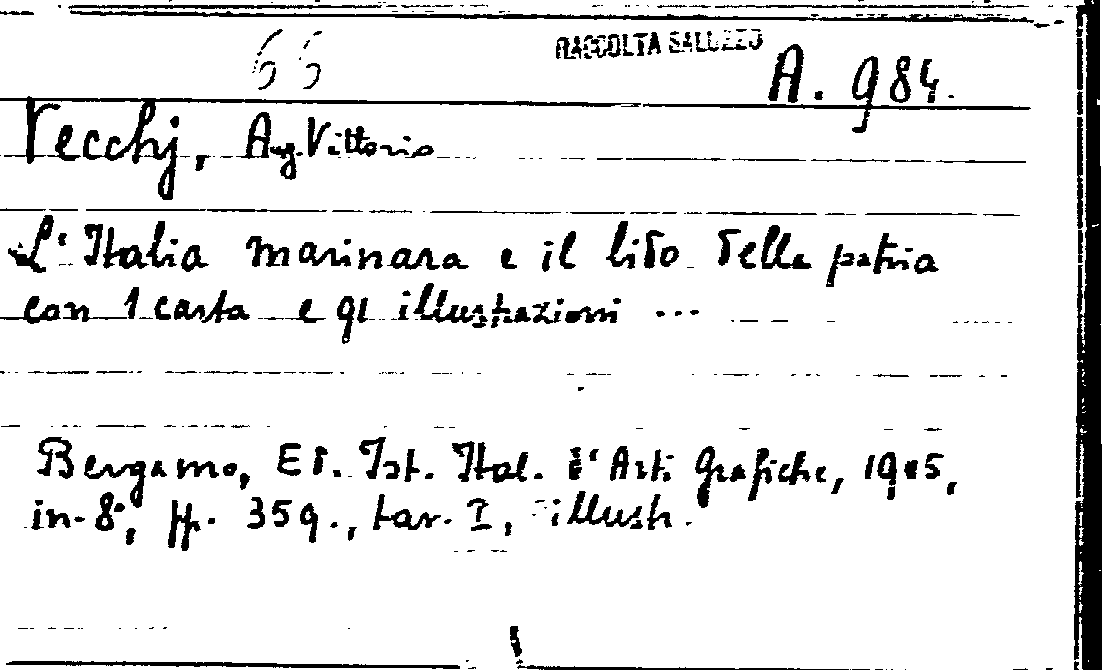 66 RACCOLTA SALUZZO A. 984.
Vecchj, Aug. Vittorio
L'Italia marinara e il lido della patria
con 1 carta e 91 illustrazioni ...
Bergamo, Ed. Ist. Ital. d'Arti Grafiche, 1905,
in-8°, pp. 359., tav. I, illustr.